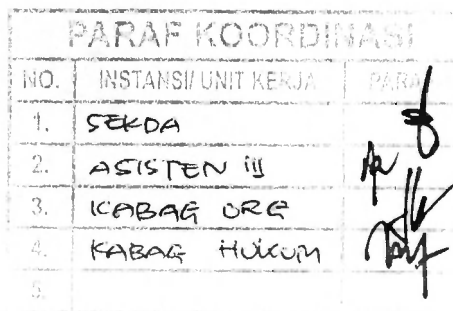 PARAF KOORDINASI
NO. INSTANSI/ UNIT KERJA PARA
1. SEKDA
2. ASISTEN III
3. KABAG ORG
4. KABAG HUKUM
5.